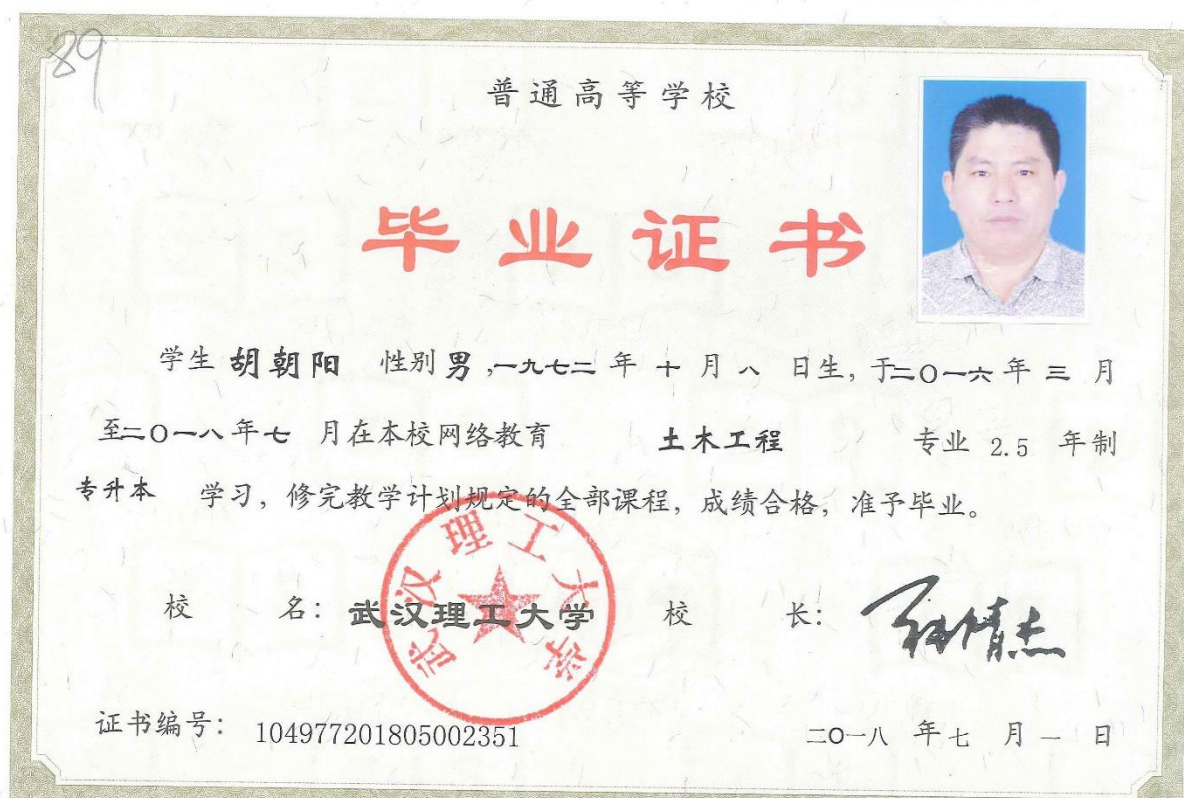 89
普通高等学校
毕业证书
学生 胡朝阳 性别 男 ,一九七二 年 十 月 八 日生, 于二〇一六 年 三 月
至二〇一八 年 七 月在本校网络教育 土木工程 专业 2.5 年制
专升本 学习, 修完教学计划规定的全部课程, 成绩合格, 准予毕业。
武汉理工大学
校 名: 武汉理工大学 校 长:
证书编号: 104977201805002351 二〇一八 年 七 月 一 日